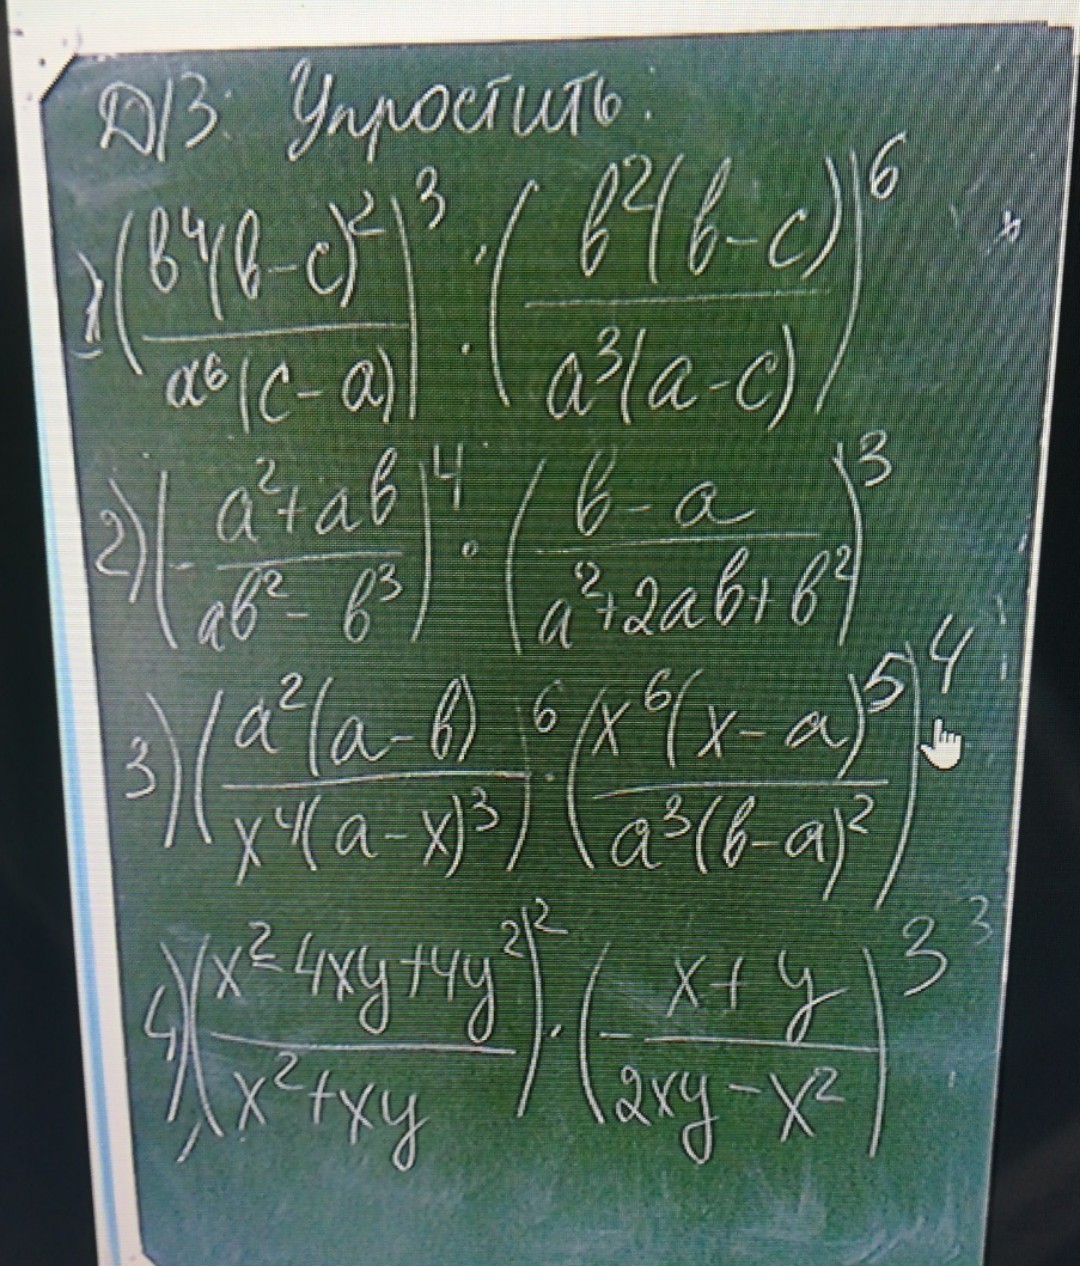 Д/З: Упростить.
1) (b⁴(b-c)² / a⁶(c-a))³ : (b²(b-c) / a³(a-c))⁶
2) (- a²+ab / ab²-b³)⁴ · (b-a / a²+2ab+b²)³
3) (a²(a-b) / x⁴(a-x)³)⁶ · (x⁶(x-a)⁵ / a³(b-a)²)⁴
4) (x²-4xy+4y² / x²+xy)² · (- x+y / 2xy-x²)³ ³